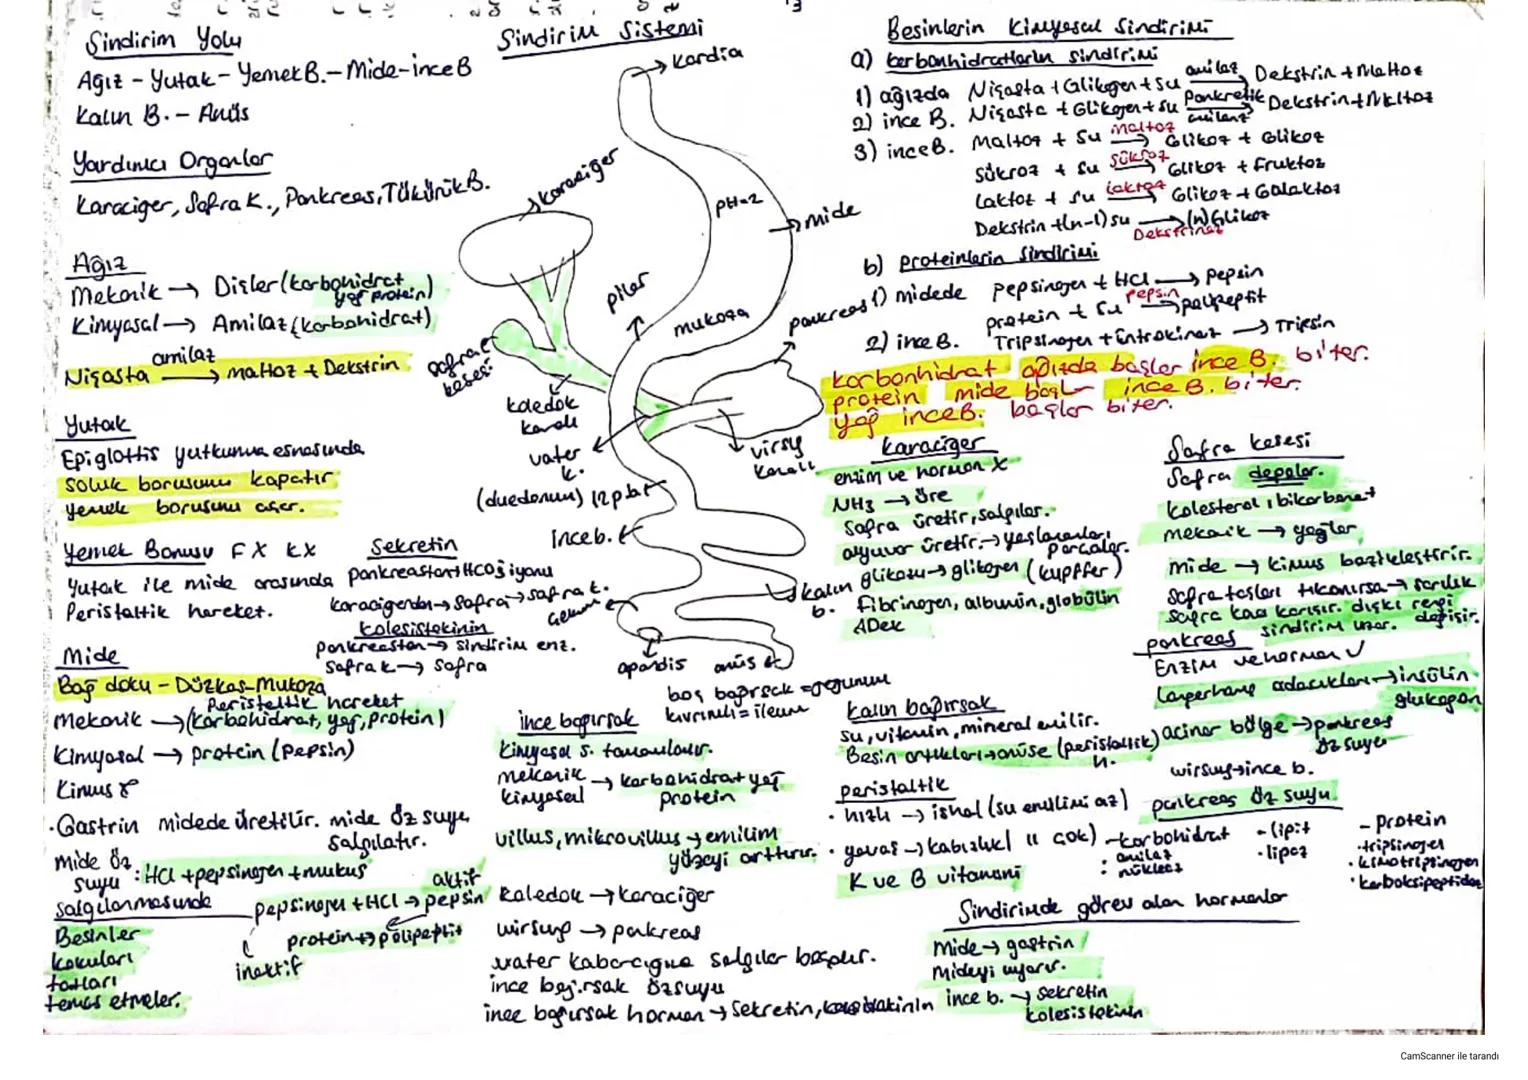 Sindirim Yolu
Ağız - Yutak - Yemek B. - Mide - ince B
Kalın B. - Anüs
Yardımcı Organlar
Karaciger, Safra K., Pankreas, Tükürük B.
Ağız
Mekanik → Dişler (karbohidrat
yağ protein)
Kimyasal → Amilaz (karbohidrat)
amilaz
Nişasta → maltoz + Dekstrin
Yutak
Epiglottis yutkunma esnasında
soluk borusunu kapatır
yemek borusunu açar.
Yemek Borusu FX KX
Yutak ile mide arasında
Peristaltik hareket.
Sekretin
pankreastan HCO3 iyonu
karacigerden → safra → safra k.
kolesistokinin
pankreastan → sindirim enz.
Safra k → safra
Mide
Bağ doku - Düzkas - Mukoza
Peristaltik hareket
Mekanik → (karbohidrat, yağ, protein)
Kimyasal → protein (pepsin)
Kimus
·Gastrin midede üretilir. mide öz suyu
salgılatır.
mide öz
suyu : HCl + pepsinojen + mukus
salgılanmasında
Besinler
kokuları
tatları
temas etmeler.
aktif
pepsinojen + HCl → pepsin
protein → polipeptit
inaktif
Sindirim Sistemi
kardia
karaciger
pH=2
mide
pilor
mukoza
pankreas
safra
kesesi
koledok
kanalı
vater
k.
virsu
kanalı
(duedonum) 12 p.bar
ince b.
kalın
b.
apandis
anüs
boş bağırsak = jejunum
kıvrımlı = ileum
ince bağırsak
kimyasal s. tamamlanır.
mekanik
kimyasal → karbohidrat yağ
protein
villus, mikrovillus → emilim
yüzeyi arttırır.
Kaledok → karaciğer
wirsung → pankreas
vater kabarcığına salgılar boşalır.
ince bağırsak özsuyu
ince bağırsak hormon → Sekretin, kolesistokinin
Besinlerin Kimyasal Sindirimi
a) karbonhidratların sindirimi
1) ağızda Nişasta + Glikojen + su amilaz → Dekstrin + Maltoz
2) ince B. Nişasta + Glikojen + su Pankretik amilaz → Dekstrin + Maltoz
3) ince B. Maltoz + su maltaz → Glikoz + Glikoz
Sükroz + su sükroz → Glikoz + fruktoz
Laktoz + su laktaz → Glikoz + Galaktoz
Dekstrin + (n-1) su → (n) Glikoz
Dekstrinaz
b) proteinlerin sindirimi
1) midede pepsinojen + HCl → pepsin
protein + su pepsin → polipeptit
2) ince B. Tripsinojen + entrokinaz → Tripsin
karbonhidrat ağızda başlar ince B. biter.
protein mide başlar ince B. biter.
yağ ince B. başlar biter.
karaciğer
enzim ve hormon X
NH3 → Üre
Safra üretir, salgılar.
alyuvar üretir. → yaşlananları
parçalar.
glikozu → glikojen (kupffer)
fibrinojen, albumin, globülin
ADEK
Safra kesesi
Safra depolar.
kolesterol, bikarbonat
mekanik → yağlar
mide → kimus bazikleştirir.
safra taşları tıkanırsa → sarılık
safra kana karışır. dışkı rengi
sindirim uzar. değişir.
pankreas
Enzim ve hormon ✓
Langerhans adacıkları → insülin
glukagon
acinar bölge → pankreas
öz suyu
wirsung → ince b.
pankreas öz suyu
- karbohidrat
· amilaz
· nükleaz
- lipit
· lipaz
- protein
· tripsinojen
· kimotripsinojen
· karboksipeptidaz
kalın bağırsak
su, vitamin, mineral emilir.
Besin artıkları → anüse (peristaltik)
h.
peristaltik
· hızlı → ishal (su emilimi az)
· yavaş → kabızlık ( " çok)
K ve B vitamini
Sindirimde görev alan hormonlar
Mide → gastrin
Mideyi uyarır.
ince b. → Sekretin
kolesistokinin
CamScanner ile tarandı